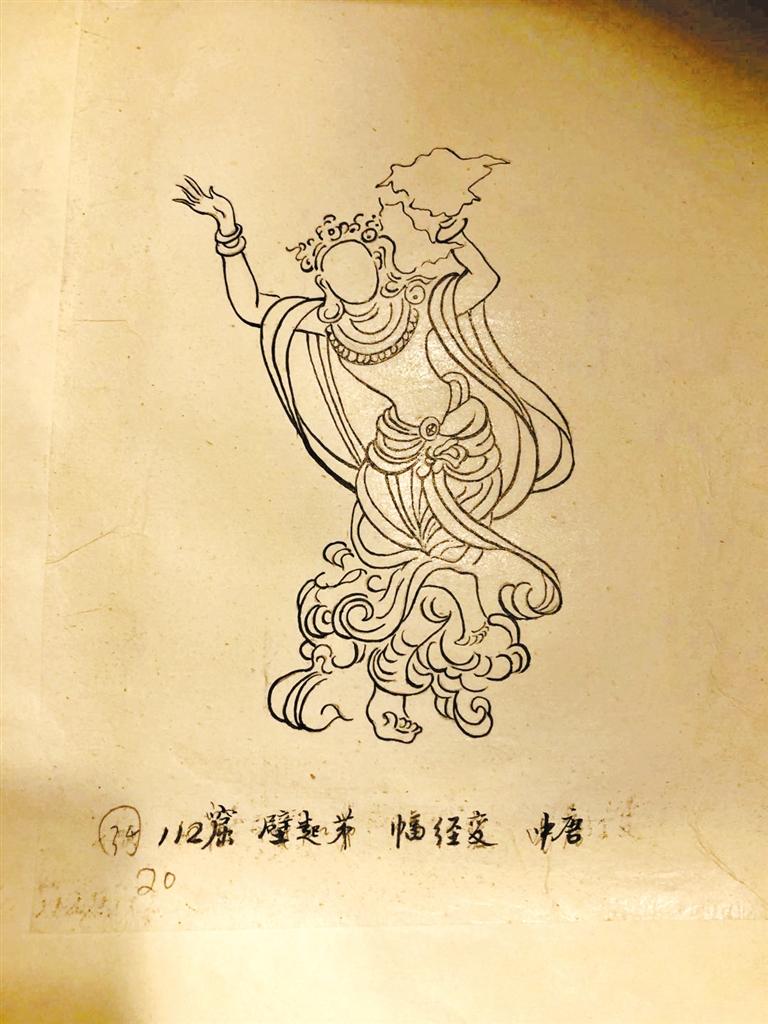 112窟 壁起第 幅经变 中唐
20